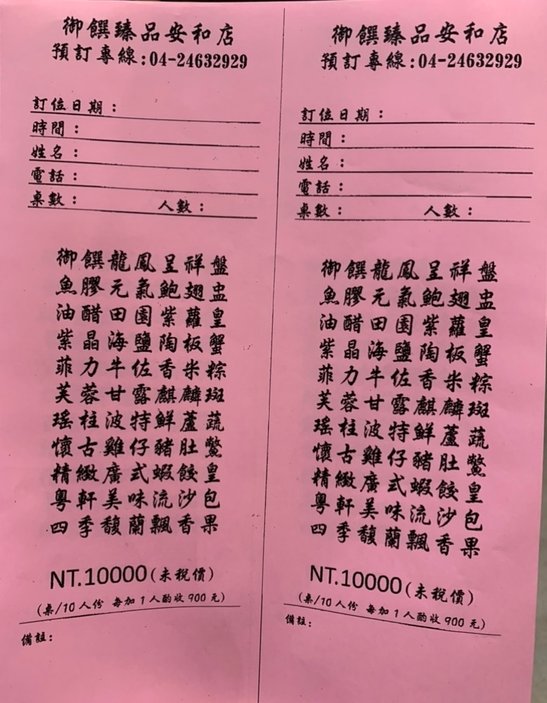 御饌臻品安和店
預訂專線:04-24632929
訂位日期：
時間：
姓名：
電話：
桌數： 人數：
御饌龍鳳呈祥盤
魚膠元氣鮑翅盅
油醋田園紫蘿皇
紫晶海鹽陶板蟹
菲力牛佐香米粽
芙蓉甘露麒麟斑
瑤柱波特鮮蘆蔬
懷古雞仔豬肚鱉
精緻廣式蝦餃皇
粵軒美味流沙包
四季馥蘭飄香果
NT.10000(未稅價)
(桌/10人份 每加1人酌收900元)
備註：
御饌臻品安和店
預訂專線:04-24632929
訂位日期：
時間：
姓名：
電話：
桌數： 人數：
御饌龍鳳呈祥盤
魚膠元氣鮑翅盅
油醋田園紫蘿皇
紫晶海鹽陶板蟹
菲力牛佐香米粽
芙蓉甘露麒麟斑
瑤柱波特鮮蘆蔬
懷古雞仔豬肚鱉
精緻廣式蝦餃皇
粵軒美味流沙包
四季馥蘭飄香果
NT.10000(未稅價)
(桌/10人份 每加1人酌收900元)
備註：